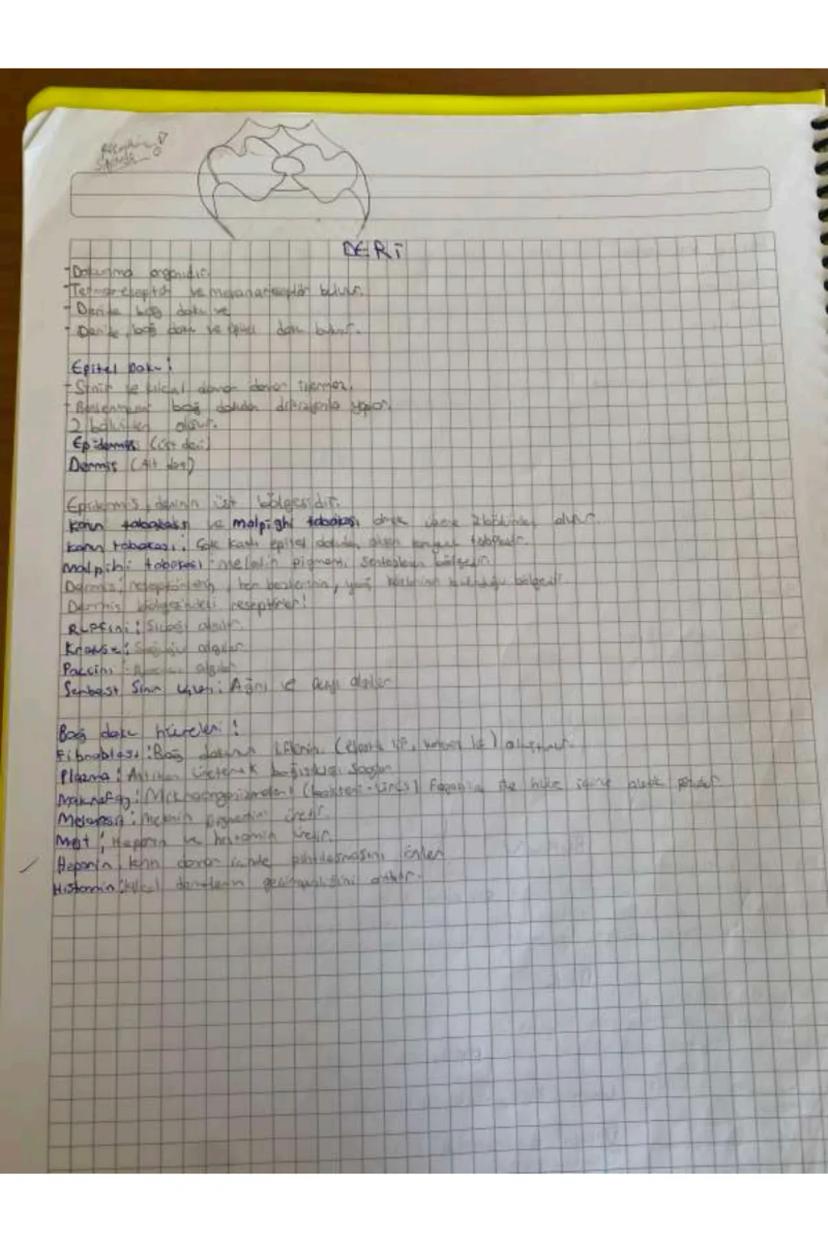 DERİ
- Dokunma organıdır.
- Termoreseptör ve mekanoreseptör bulunur.
- Deride bağ doku ve
- Deride bağ doku ve epitel doku bulunur.
Epitel Doku:
- Sinir ve kılcal damar damar içermez.
- Beslenmesini bağ dokudan difüzyonla yapar.
2 bölümden oluşur.
Epidermis (Üst deri)
Dermis (Alt deri)
Epidermis, derinin üst bölgesidir.
Korun tabakası ve malpighi tabakası diye üzere 2 bölümden oluşur.
Korun tabakası: Çok katlı epitel dokudan oluşan tabakadır.
Malpihi tabakası: melanin pigmenti sentezlenen bölgedir.
Dermis: reseptörlerin, ter bezlerinin, yağ bulunduğu bölgedir.
Dermis bölgesindeki reseptörler:
Ruffini: Sıcağı algılar.
Krause: Soğuğu algılar.
Paccini: algılar.
Serbest Sinir Uçları: Ağrı ve acıyı algılar
Bağ doku hücreleri:
Fibroblast: Bağ dokunun liflerini (elastik lif, lif) oluşturur.
Plazma: Antikor üreterek bağışıklığı sağlar
Makrofaj: Mikroorganizmaları (bakteri-virüs) Fagositoz ile hücre içine alarak
Melanosit: Melanin pigmentini üretir.
Mast: Heparin ve histamin üretir.
Heparin kanın damar içinde pıhtılaşmasını önler
Histamin: Kılcal damarların geçirgenliğini arttırır.